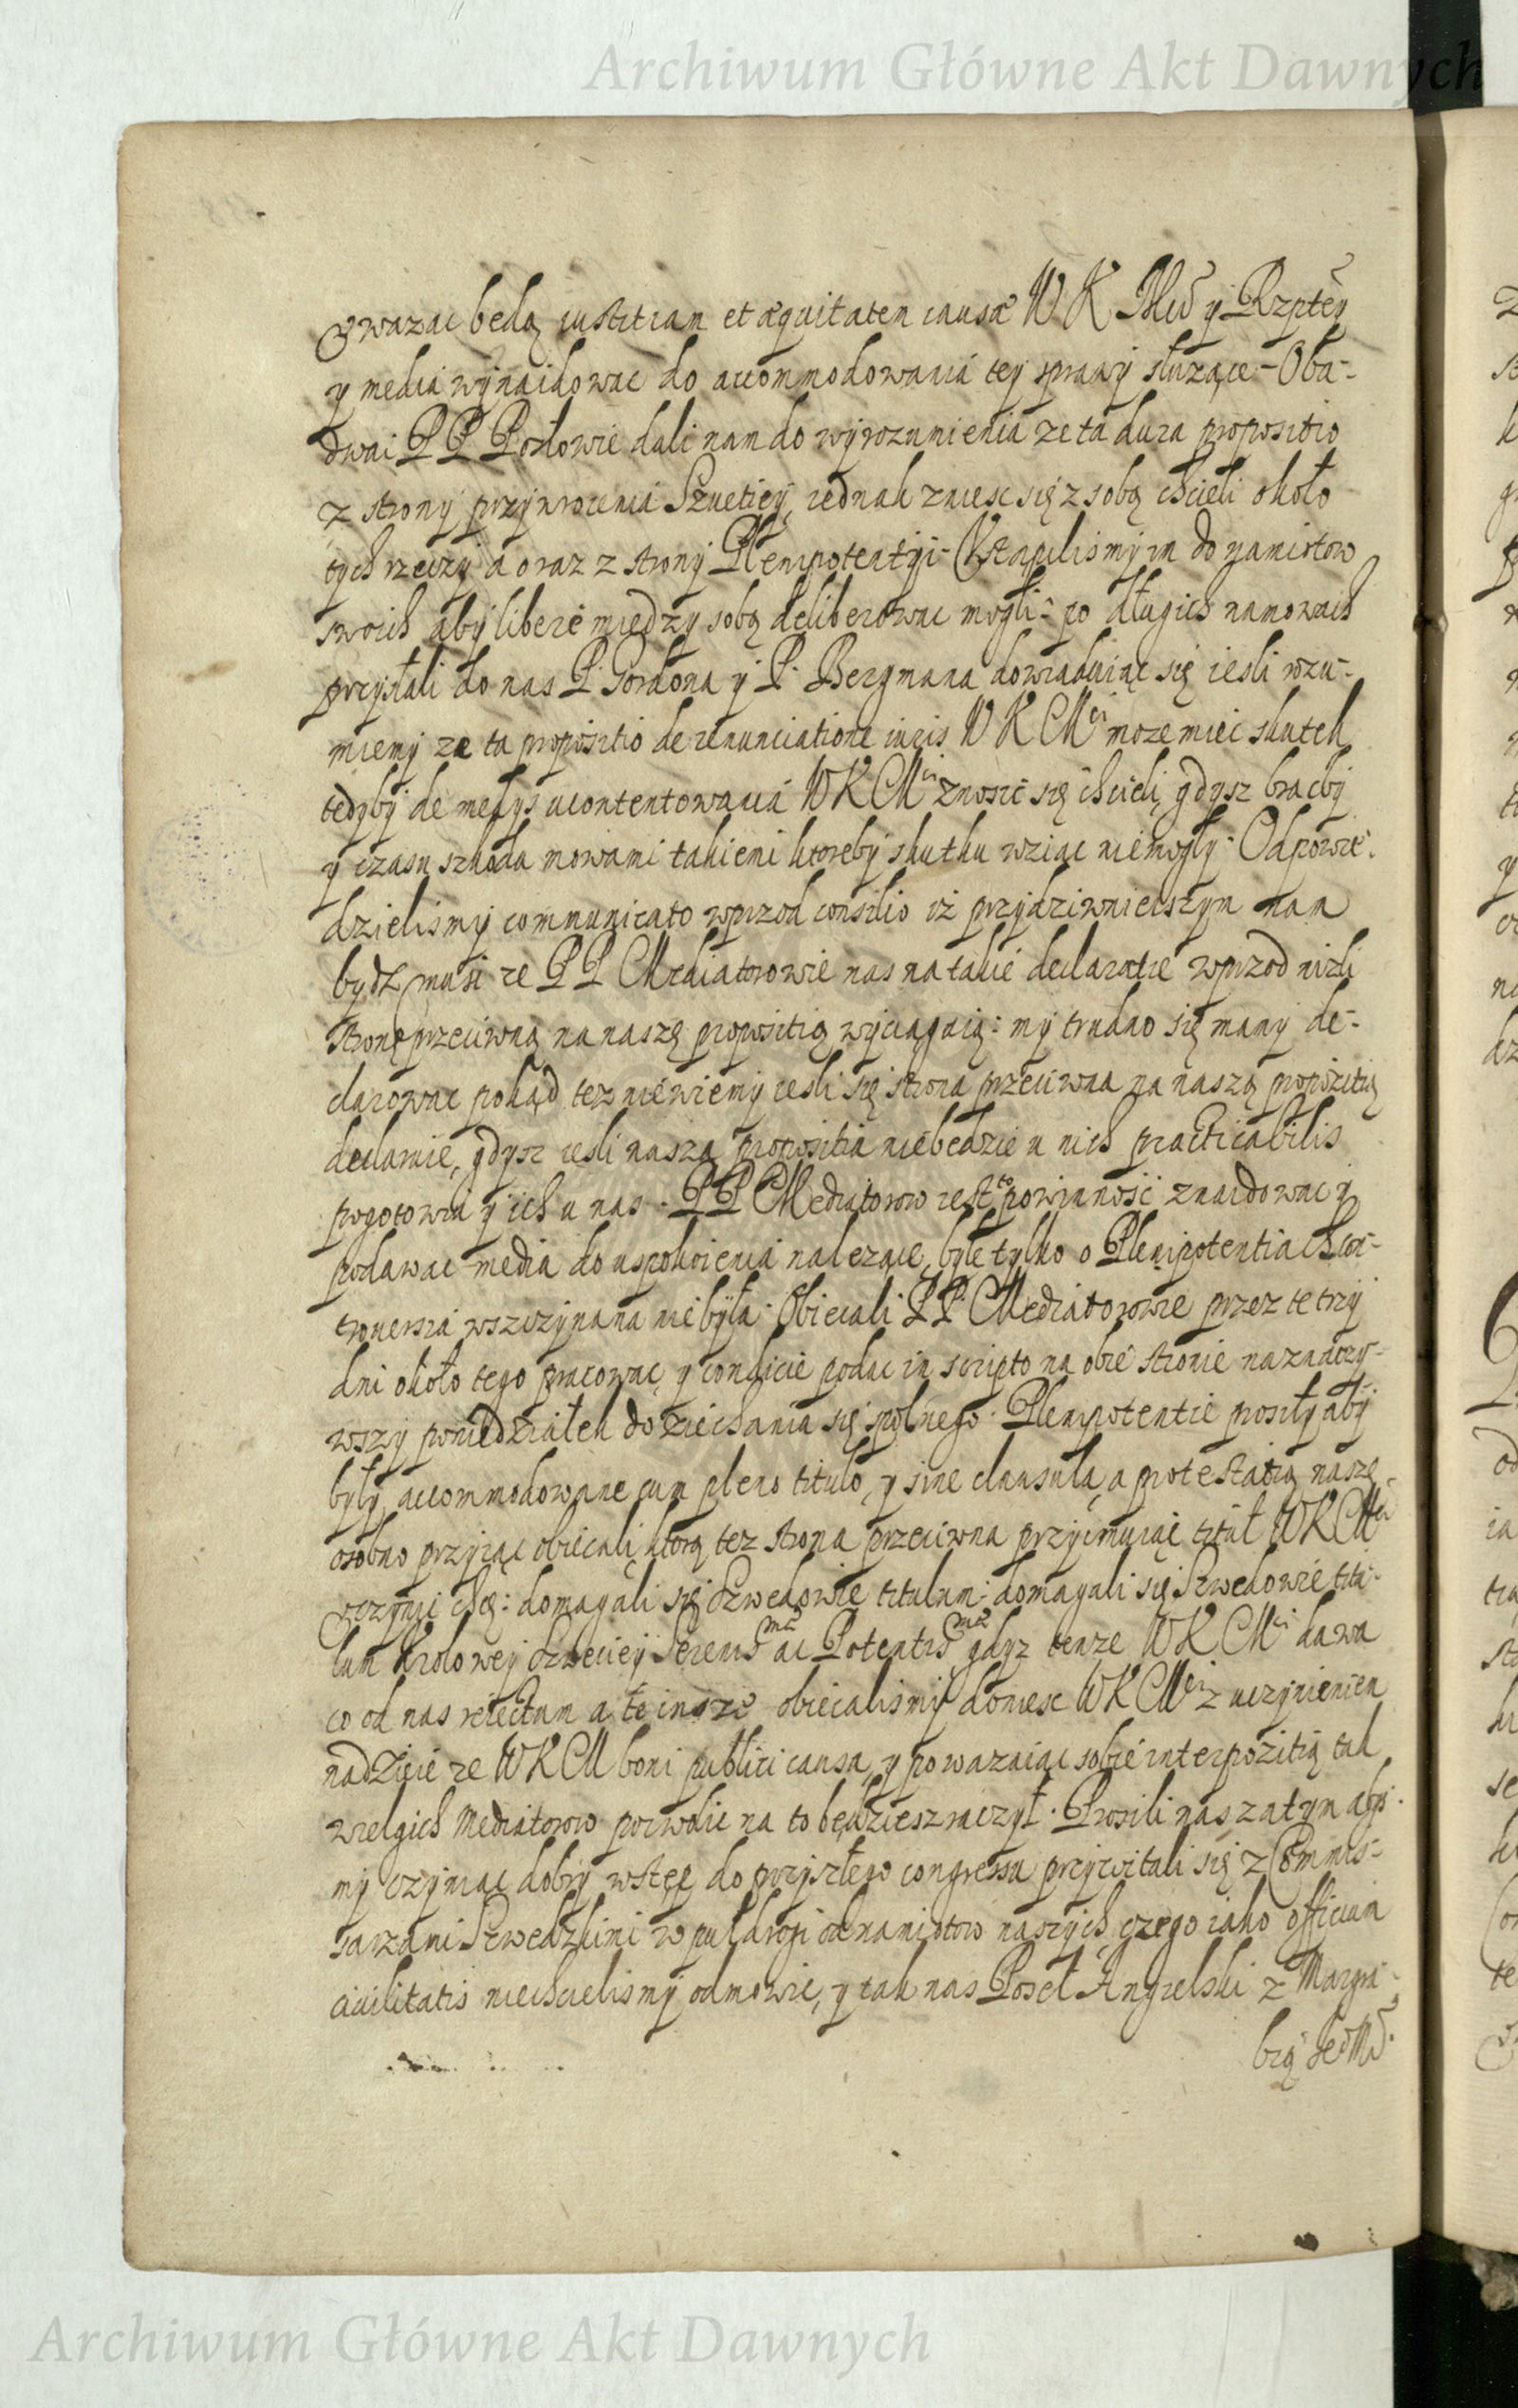 Archiwum Główne Akt Dawnych
Uwazac będą iustitiam et æquitatem causæ W K Mci y Rzptey
y media wynaidowac do accommodowania tey sprawy słuzące - Oba-
dwai P P Posłowie dali nam do wyrozumienia ze ta dura propositio
z strony przywrocenia Szuetiey, iednak zniesc się z sobą chcieli około
tych rzeczy a oraz z strony Plenipotentyi - Ustąpilismy im do namiotow
swoich aby libere między sobą deliberowac mogli - po długich namowach
przysłali do nas P. Gordona y P. Bergmana dowiaduiąc się iesli rozu-
miemy ze ta propositio de renunciatione iuris W K Mci moze miec skutek
tedyby de medys ucontentowania WKMci znosic się chcieli, gdysz braćby
y czasu szkoda mowami takiemi ktoreby skutku wziąc niemogły - Odpowie-
dzielismy communicato wprzod consilio iż przydziwnieiszym nam
bydz musi ze P P Mediatorowie nas na takie declaratie wprzod nizli
stronę przeciwną na naszę propositią wyciągaią: my trudno się mamy de-
clarowac pokąd tez niewiemy iesli się strona przeciwna na naszę propozitią
declaruie, gdysz iesli nasza propositia niebedzie u nich practicabilis
pogotowiu y ich u nas - P P Mediatorow iest to powinność znaidowac y
podawac media do uspokoienia nalezące, byle tylko o Plenipotentiach con-
trouersia wszczynana niebyła - Obiecali P P Mediatorowie przez te trzy
dni około tego pracowac, y condicie podac in scripto na obie stronie nazaiutrz-
wszy poniedziałek do ziechania się spolnego. Plenipotentie posiły aby
były accommodowane cum pleno titulo, y sine clausula, a protestatią naszę
osobno przyiąc obiecali, ktorą tez strona przeciwna przyimuiąc titul WKMci
uczynić chcę: domagali się Szwedowie titulum: domagali się Szwedowie titu-
lum Krolowey Szweciey Sereniss mæ ac Potentiss mæ gdyz tenze WK Mci dawa
co od nas reiectum a te insze obiecalismy doniesc WKMci z uczynieniem
nadzieie ze WKM boni publici causa, y powazaiąc sobie interpozitią tak
wielgich Mediatorow pozwolic na to będziesz raczył. Prosili nas zatym abys-
my czyniąc dobry wstęp do przyszłego congressu przywitali się z Commis-
sarzami Szwedzkimi w puł drogi od namiotow naszych, czego iako officium
ciuilitatis niechcielismy odmowic, y tak nas Poseł Angielski z Margra-
bią JeoMcią
Archiwum Główne Akt Dawnych